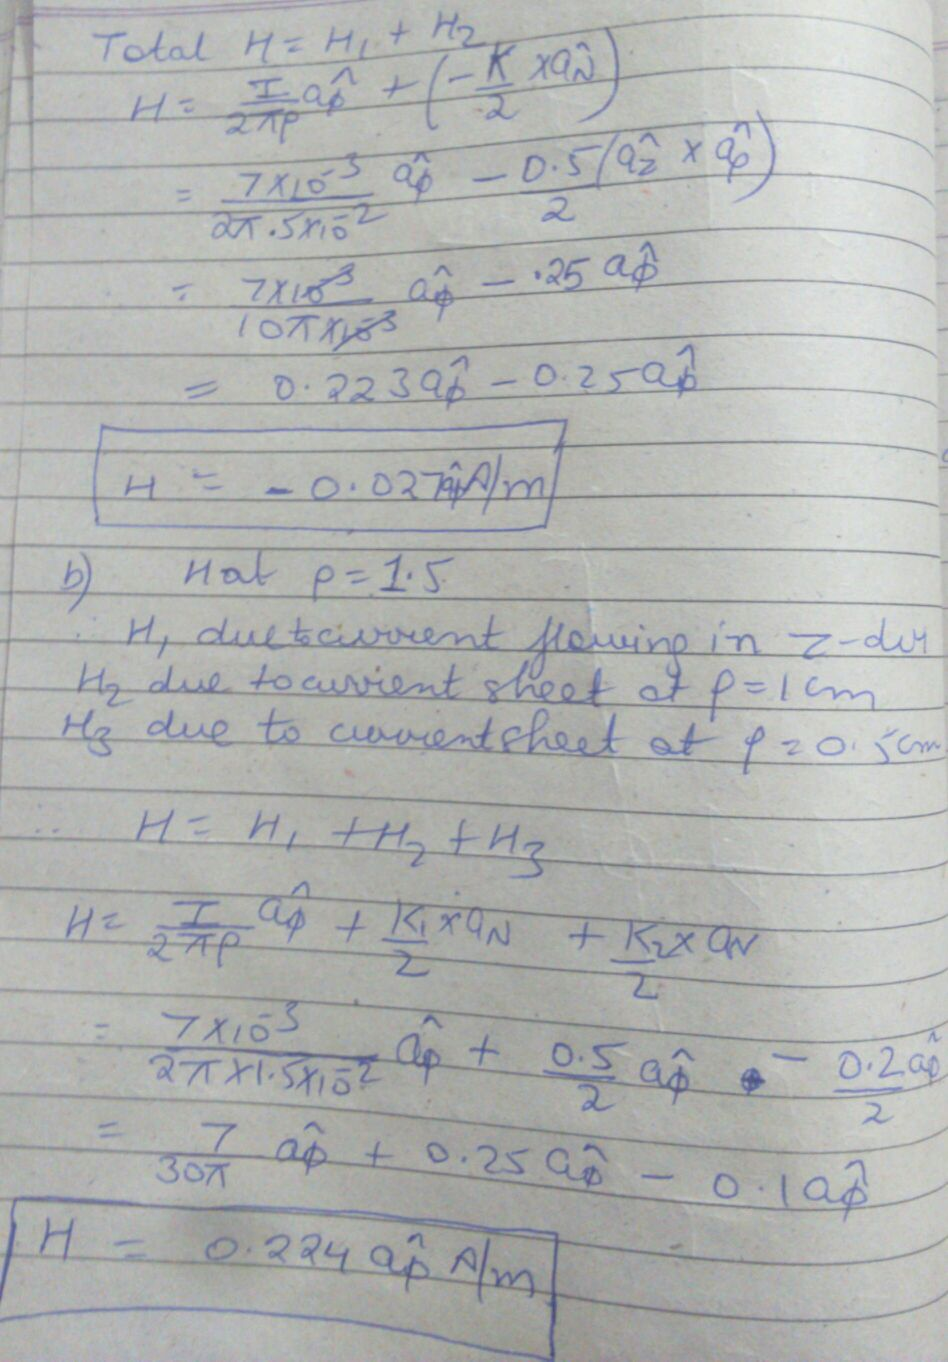 Total H = H₁ + H₂
H = I/2πρ aφ̂ + (-K/2 × aN̂)
= 7×10⁻³/2π.5×10⁻² aφ̂ - 0.5/2 (aẑ × aρ̂)
= 7×10⁻³/10π×10⁻³ aφ̂ - .25 aφ̂
= 0.223aφ̂ - 0.25aφ̂
H = -0.027aφ̂ A/m
b) H at ρ = 1.5
∴ H₁ due to current flowing in z-dir
H₂ due to current sheet at ρ = 1 cm
H₃ due to current sheet at ρ = 0.5cm
∴ H = H₁ + H₂ + H₃
H = I/2πρ aφ̂ + K₁/2 × aN + K₂/2 × aN
= 7×10⁻³/2π×1.5×10⁻² aφ̂ + 0.5/2 aφ̂ - 0.2/2 aφ̂
= 7/30π aφ̂ + 0.25 aφ̂ - 0.1 aφ̂
H = 0.224 aφ̂ A/m